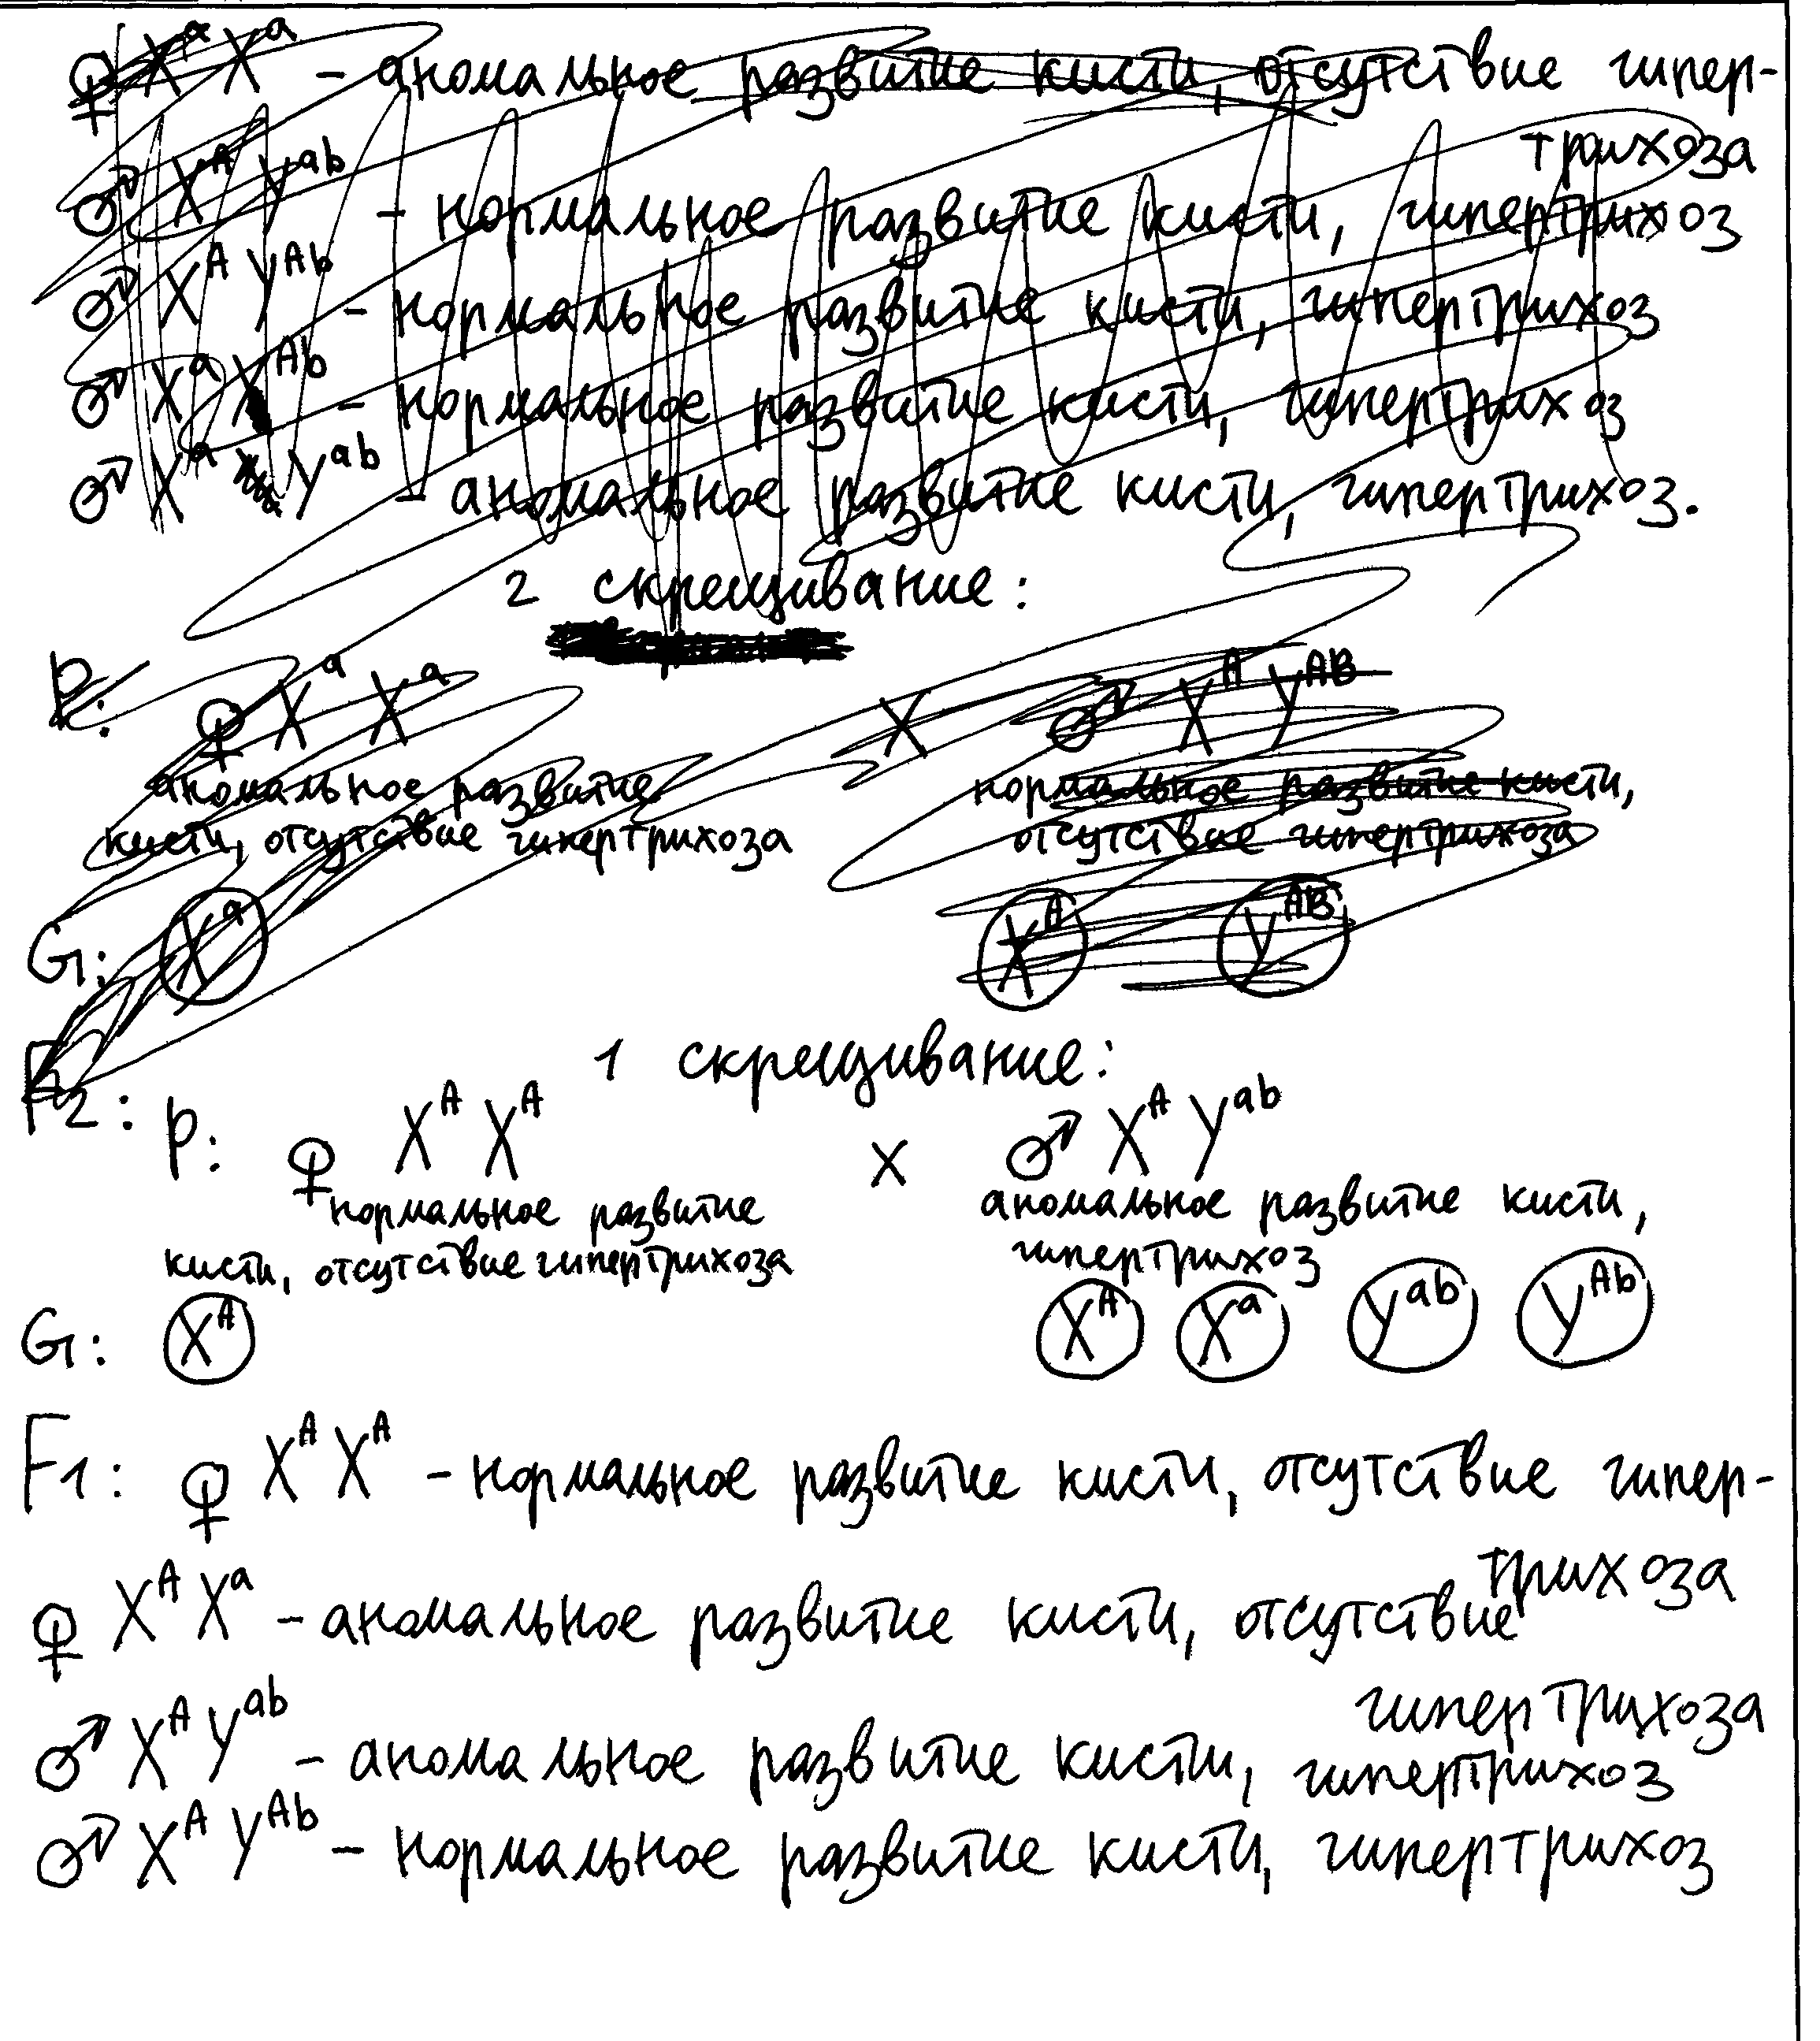 ♀ XᵃXᵃ - аномальное развитие кисти, отсутствие гипер-
трихоза
♂ Xᴬ Yᵃᵇ - нормальное развитие кисти, гипертрихоз
♂ Xᴬ Yᴬᵇ - нормальное развитие кисти, гипертрихоз
♂ Xᵃ Yᴬᵇ - нормальное развитие кисти, гипертрихоз
♂ Xᵃ Yᵃᵇ - аномальное развитие кисти, гипертрихоз.
2 скрещивание:
P: ♀ Xᵃ Xᵃ X ♂ Xᴬ Yᴬᴮ
аномальное развитие нормальное развитие кисти,
кисти, отсутствие гипертрихоза отсутствие гипертрихоза
G: Xᵃ Xᴬ Yᴬᴮ
1 скрещивание:
F2: P: ♀ Xᴬ Xᴬ x ♂ Xᴬ Yᵃᵇ
нормальное развитие аномальное развитие кисти,
кисти, отсутствие гипертрихоза гипертрихоз
G: Xᴬ Xᴬ Xᵃ Yᵃᵇ Yᴬᵇ
F1: ♀ Xᴬ Xᴬ - нормальное развитие кисти, отсутствие гипер-
трихоза
♀ Xᴬ Xᵃ - аномальное развитие кисти, отсутствие
гипертрихоза
♂ Xᴬ Yᵃᵇ - аномальное развитие кисти, гипертрихоз
♂ Xᴬ Yᴬᵇ - нормальное развитие кисти, гипертрихоз